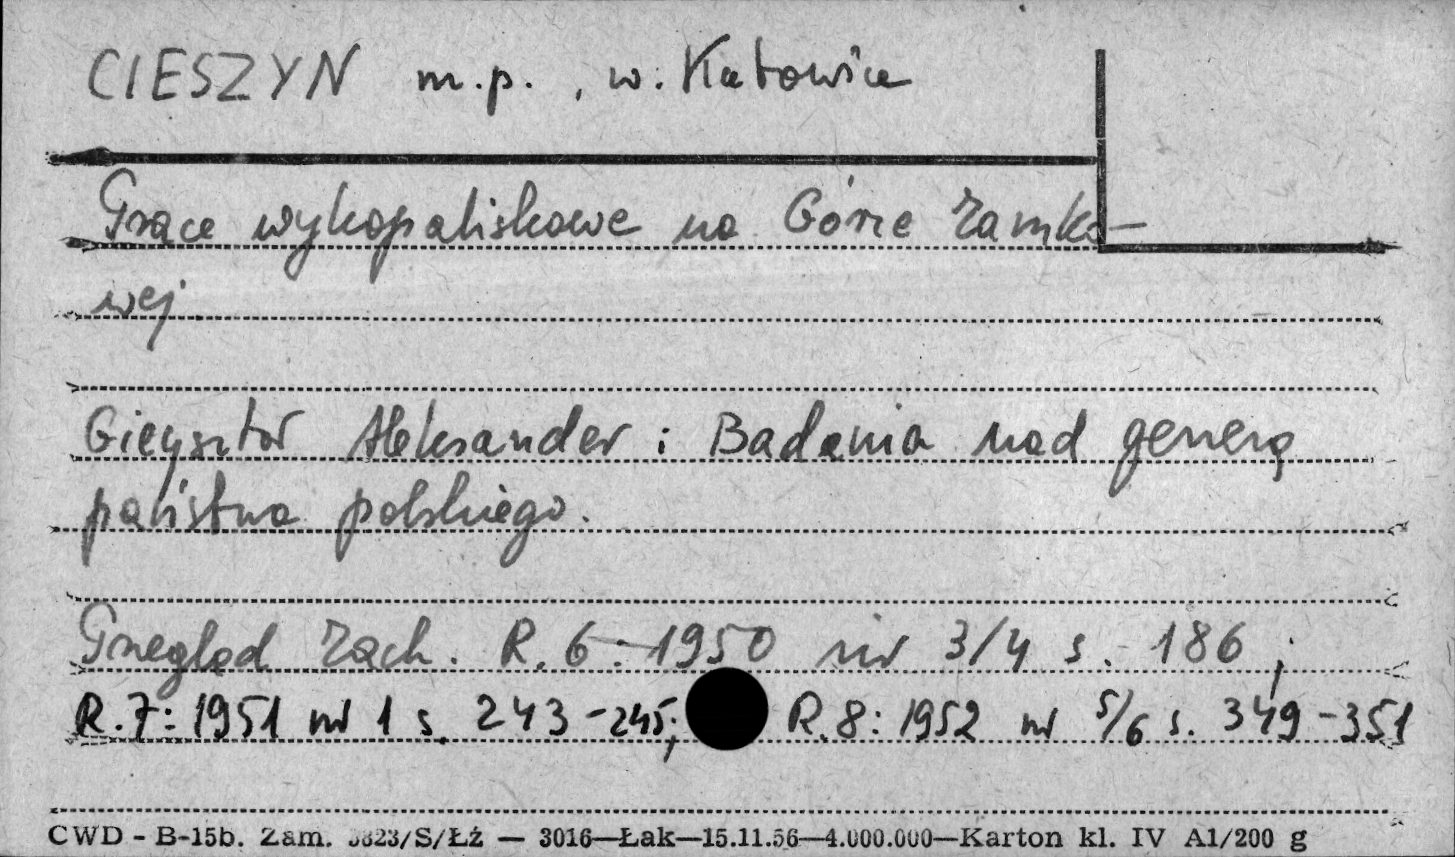 CIESZYN m.p., w. Katowice
Prace wykopaliskowe na Górze Zamko-
wej
Gieysztor Aleksander : Badania nad genezą
państwa polskiego.
Przegląd Zach. R. 6: 1950 nr 3/4 s. 186 ;
R. 7: 1951 nr 1 s. 243-245; R. 8: 1952 nr 5/6 s. 349-351
CWD - B-15b. Zam. 3823/S/Łż — 3016—Łak—15.11.56—4.000.000—Karton kl. IV A1/200 g